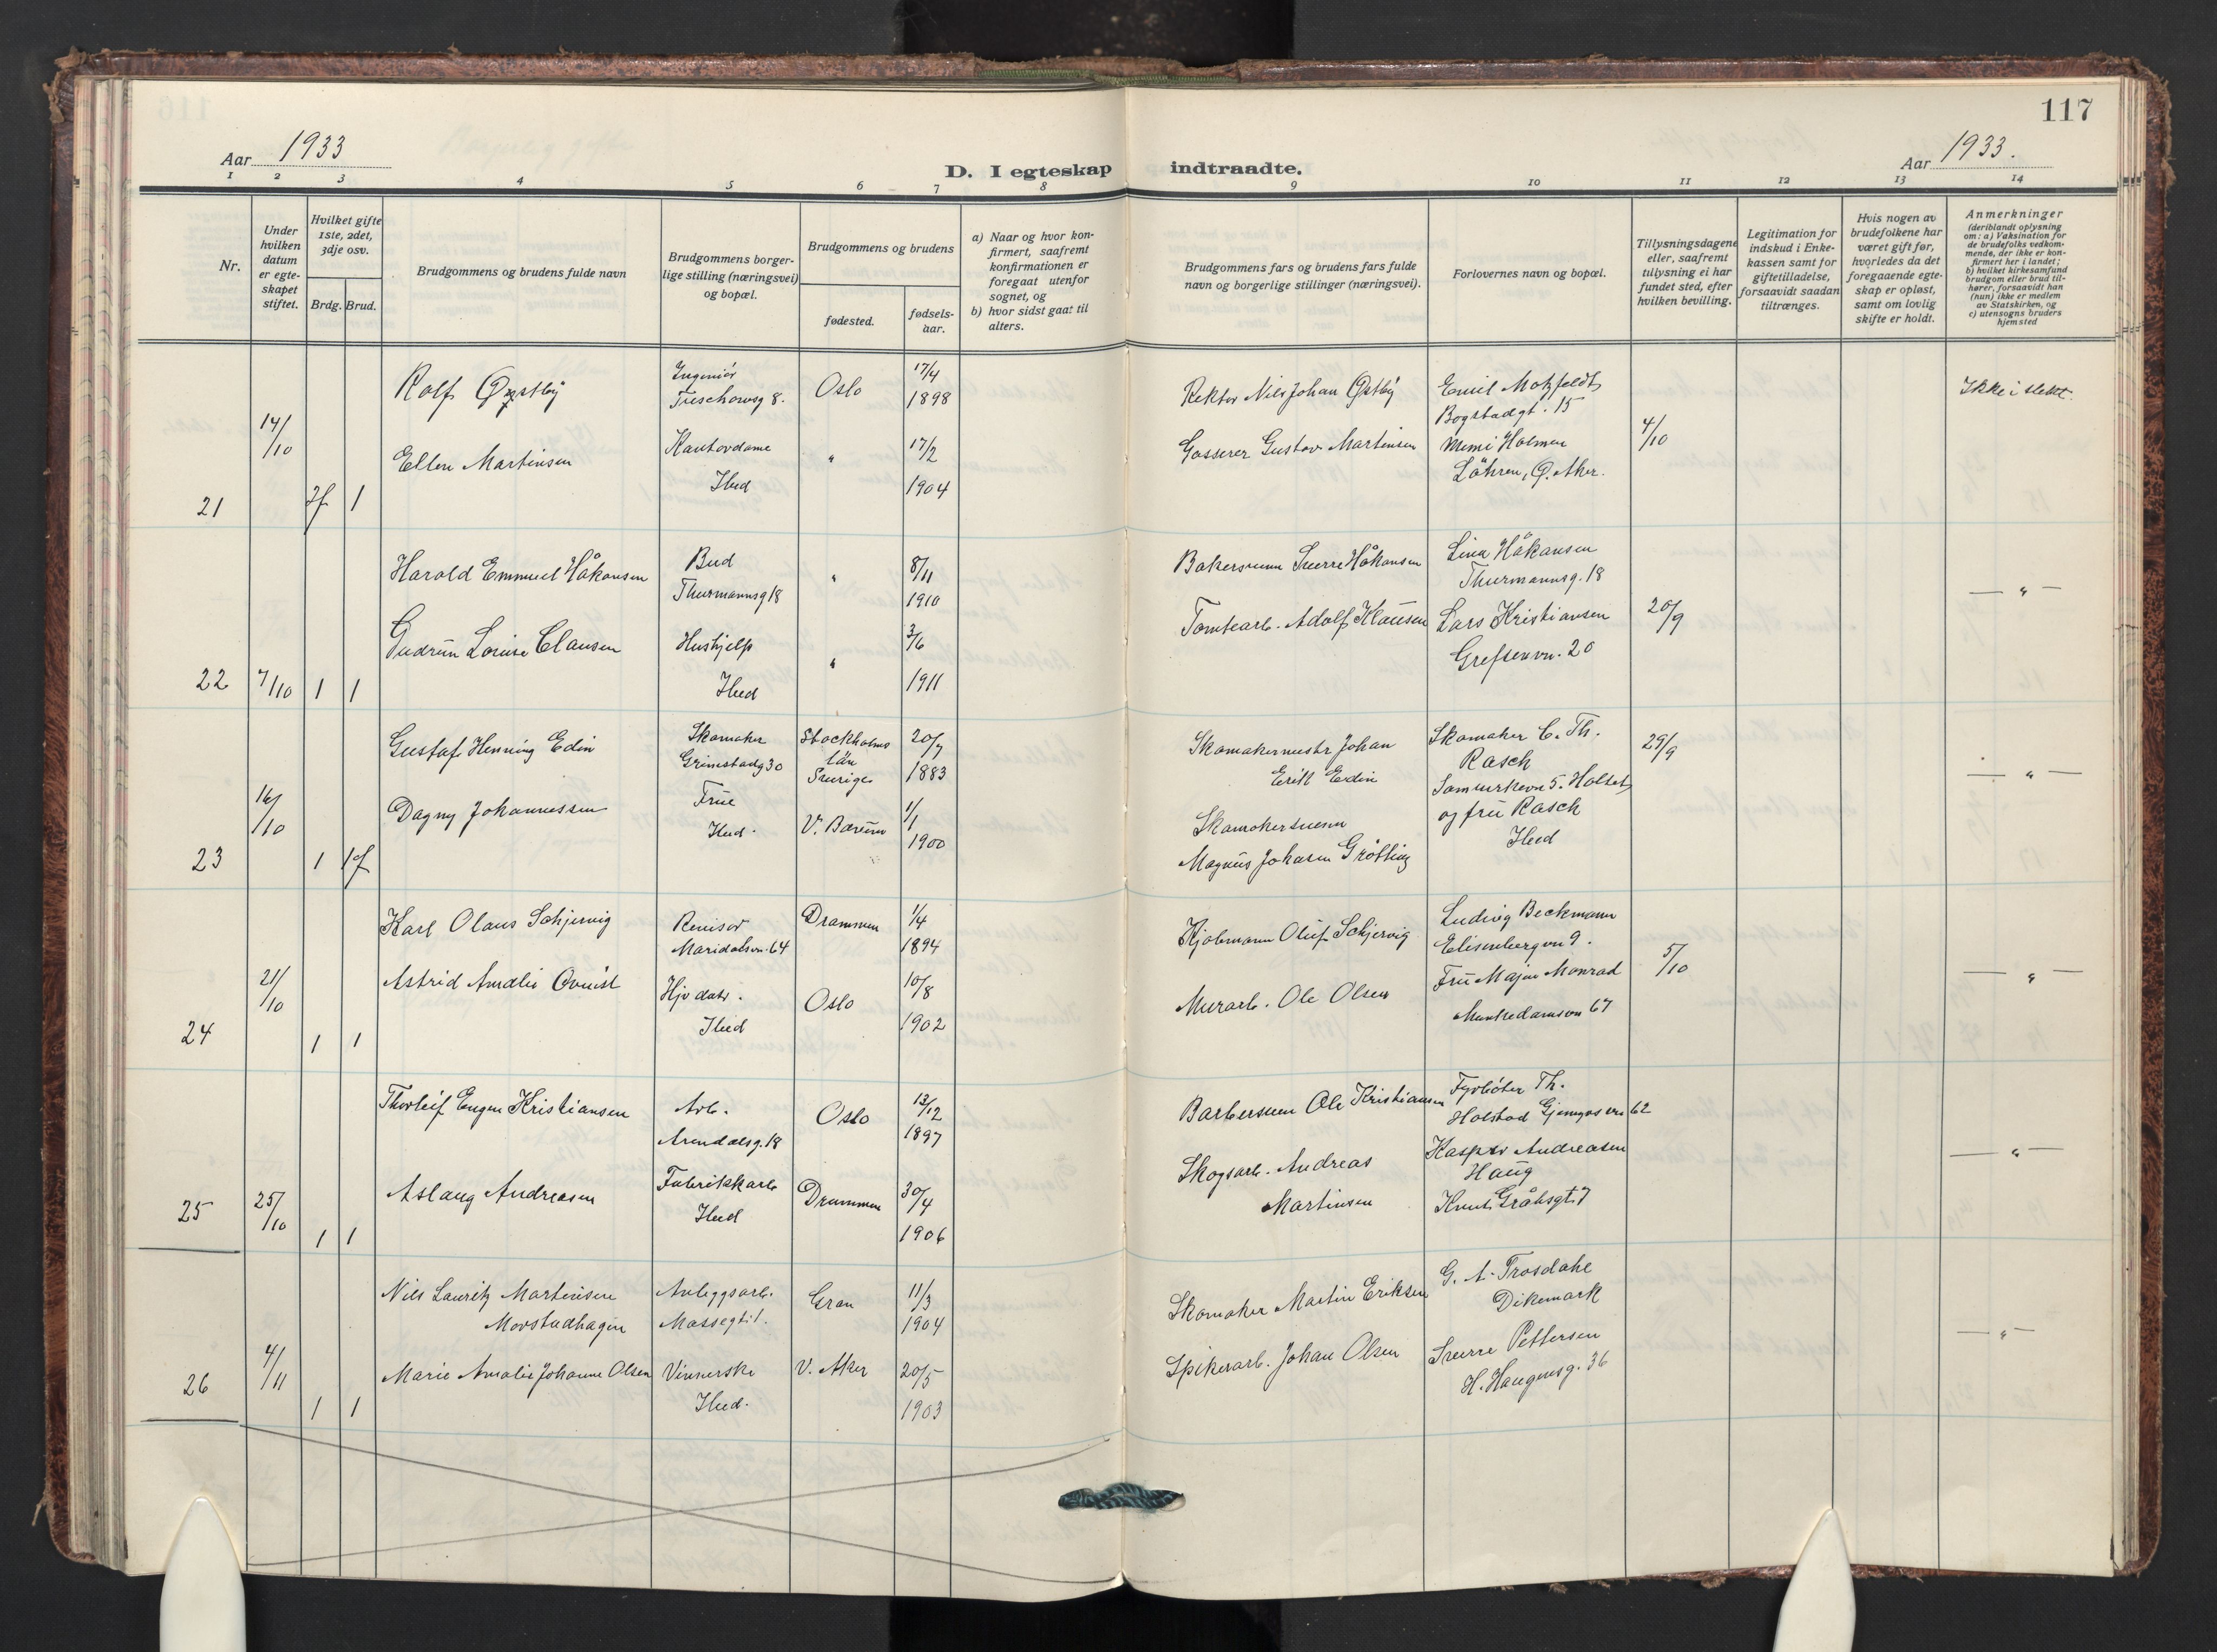 117
Aar 1933
D. I egteskap indtraadte.
Aar 1933.
1 2 3 4 5 6 7 8 9 10 11 12 13 14
Nr.
Under hvilken datum er egteskapet stiftet.
Hvilket gifte 1ste, 2det, 3dje osv.
Brdg. Brud.
Brudgommens og brudens fulde navn
Brudgommens borgerlige stilling (næringsvei) og bopæl.
Brudgommens og brudens
fødested.
fødselsaar.
a) Naar og hvor konfirmert, saafremt konfirmationen er foregaat utenfor sognet, og
b) hvor sidst gaat til alters.
Brudgommens fars og brudens fars fulde navn og borgerlige stillinger (næringsvei).
Forlovernes navn og bopæl.
Tillysningsdagene eller, saafremt tillysning ei har fundet sted, efter hvilken bevilling.
Legitimation for indskud i Enkekassen samt for giftetilladelse, forsaavidt saadan tiltrænges.
Hvis nogen av brudefolkene har været gift før, hvorledes da det foregaaende egteskap er opløst, samt om lovlig skifte er holdt.
Anmerkninger (deriblandt oplysning om: a) Vaksination for de brudefolks vedkommende, der ikke er konfirmert her i landet; b) hvilket kirkesamfund brudgom eller brud tilhører, forsaavidt han (hun) ikke er medlem av Statskirken, og c) utensogns bruders hjemsted
21
14/10
1
Rolf Østby
Ingeniør
Treschowsg 8.
Oslo
17/4
1898
Rektor Nils Johan Østby
Emil Motzfeldt
Bogstadgt. 15
Ikke i slekt.
Ellen Martinsen
Kontordame
Ibid
"
17/2
1904
Gustav Martinsen
Mimi Holmen
Ø. Aker.
4/10
22
7/10
1 1
Harold Emmuel Håkonsen
Bud
Thurmannsg 18
"
8/11
1910
Bakersvenn Sverre Håkonsen
Lina Håkansen
Thurmannsg. 18
— " —
Gudrun Louise Clausen
Hushjelp
Ibid
"
3/6
1911
Tomtearb. Adolf Klausen
Lars Kristiansen
Grefsenvn. 20
20/9
23
16/10
1 1f
Gustaf Henning Edin
Skomaker
Grimstadg 30
Stockholms
län
Sverige
20/7
1883
Skomakermestr Johan
Erik Edin
Skomaker C. Th.
Rasch
29/9
— " —
Dagny Johannessen
Frue
Ibid.
V. Bærum
1/1
1900
Skomakersvenn
Magnus Johasen Grøtting
og fru Rasch
Ibid
24
21/10
1 1
Karl Olaus Schjervig
Revisor
Maridalsvn. 64
Drammen
1/4
1894
Kjøbmann Oluf Schjervig
Ludvig Beckmann
Elisenbergvn 9.
5/10
— " —
Astrid Amalie Qvuist
Hjv datr.
Ibid
Oslo
10/8
1902
Murarb. Ole Olsen
Fru Major Monrad
Munkedamsvn 67
25
25/10
1 1
Thorleif Eugen Kristiansen
Arb.
Arendalsg. 18
Oslo
13/12
1897
Barbersvenn Ole Kristiansen
Fyrbøter Th.
Holstad
62
— " —
Aslaug Andreasen
Fabrikkarb
Ibid
Drammen
30/4
1906
Skogsarb. Andreas
Martinsen
Kasper Andreasen
Haug
7
26
4/11
1 1
Nils Lauritz Martinsen
Morstadhagen
Anleggsarb.
Mossegt 1.
Gran
11/3
1904
Skomaker Martin Eriksen
G. A. Trosdahl
Dikemark
— " —
Marie Amalie Johanne Olsen
Vinnerske
Ibid.
V. Aker
20/5
1903
Spikerarb. Johan Olsen
Sverre Pettersen
H. Haugensg. 36